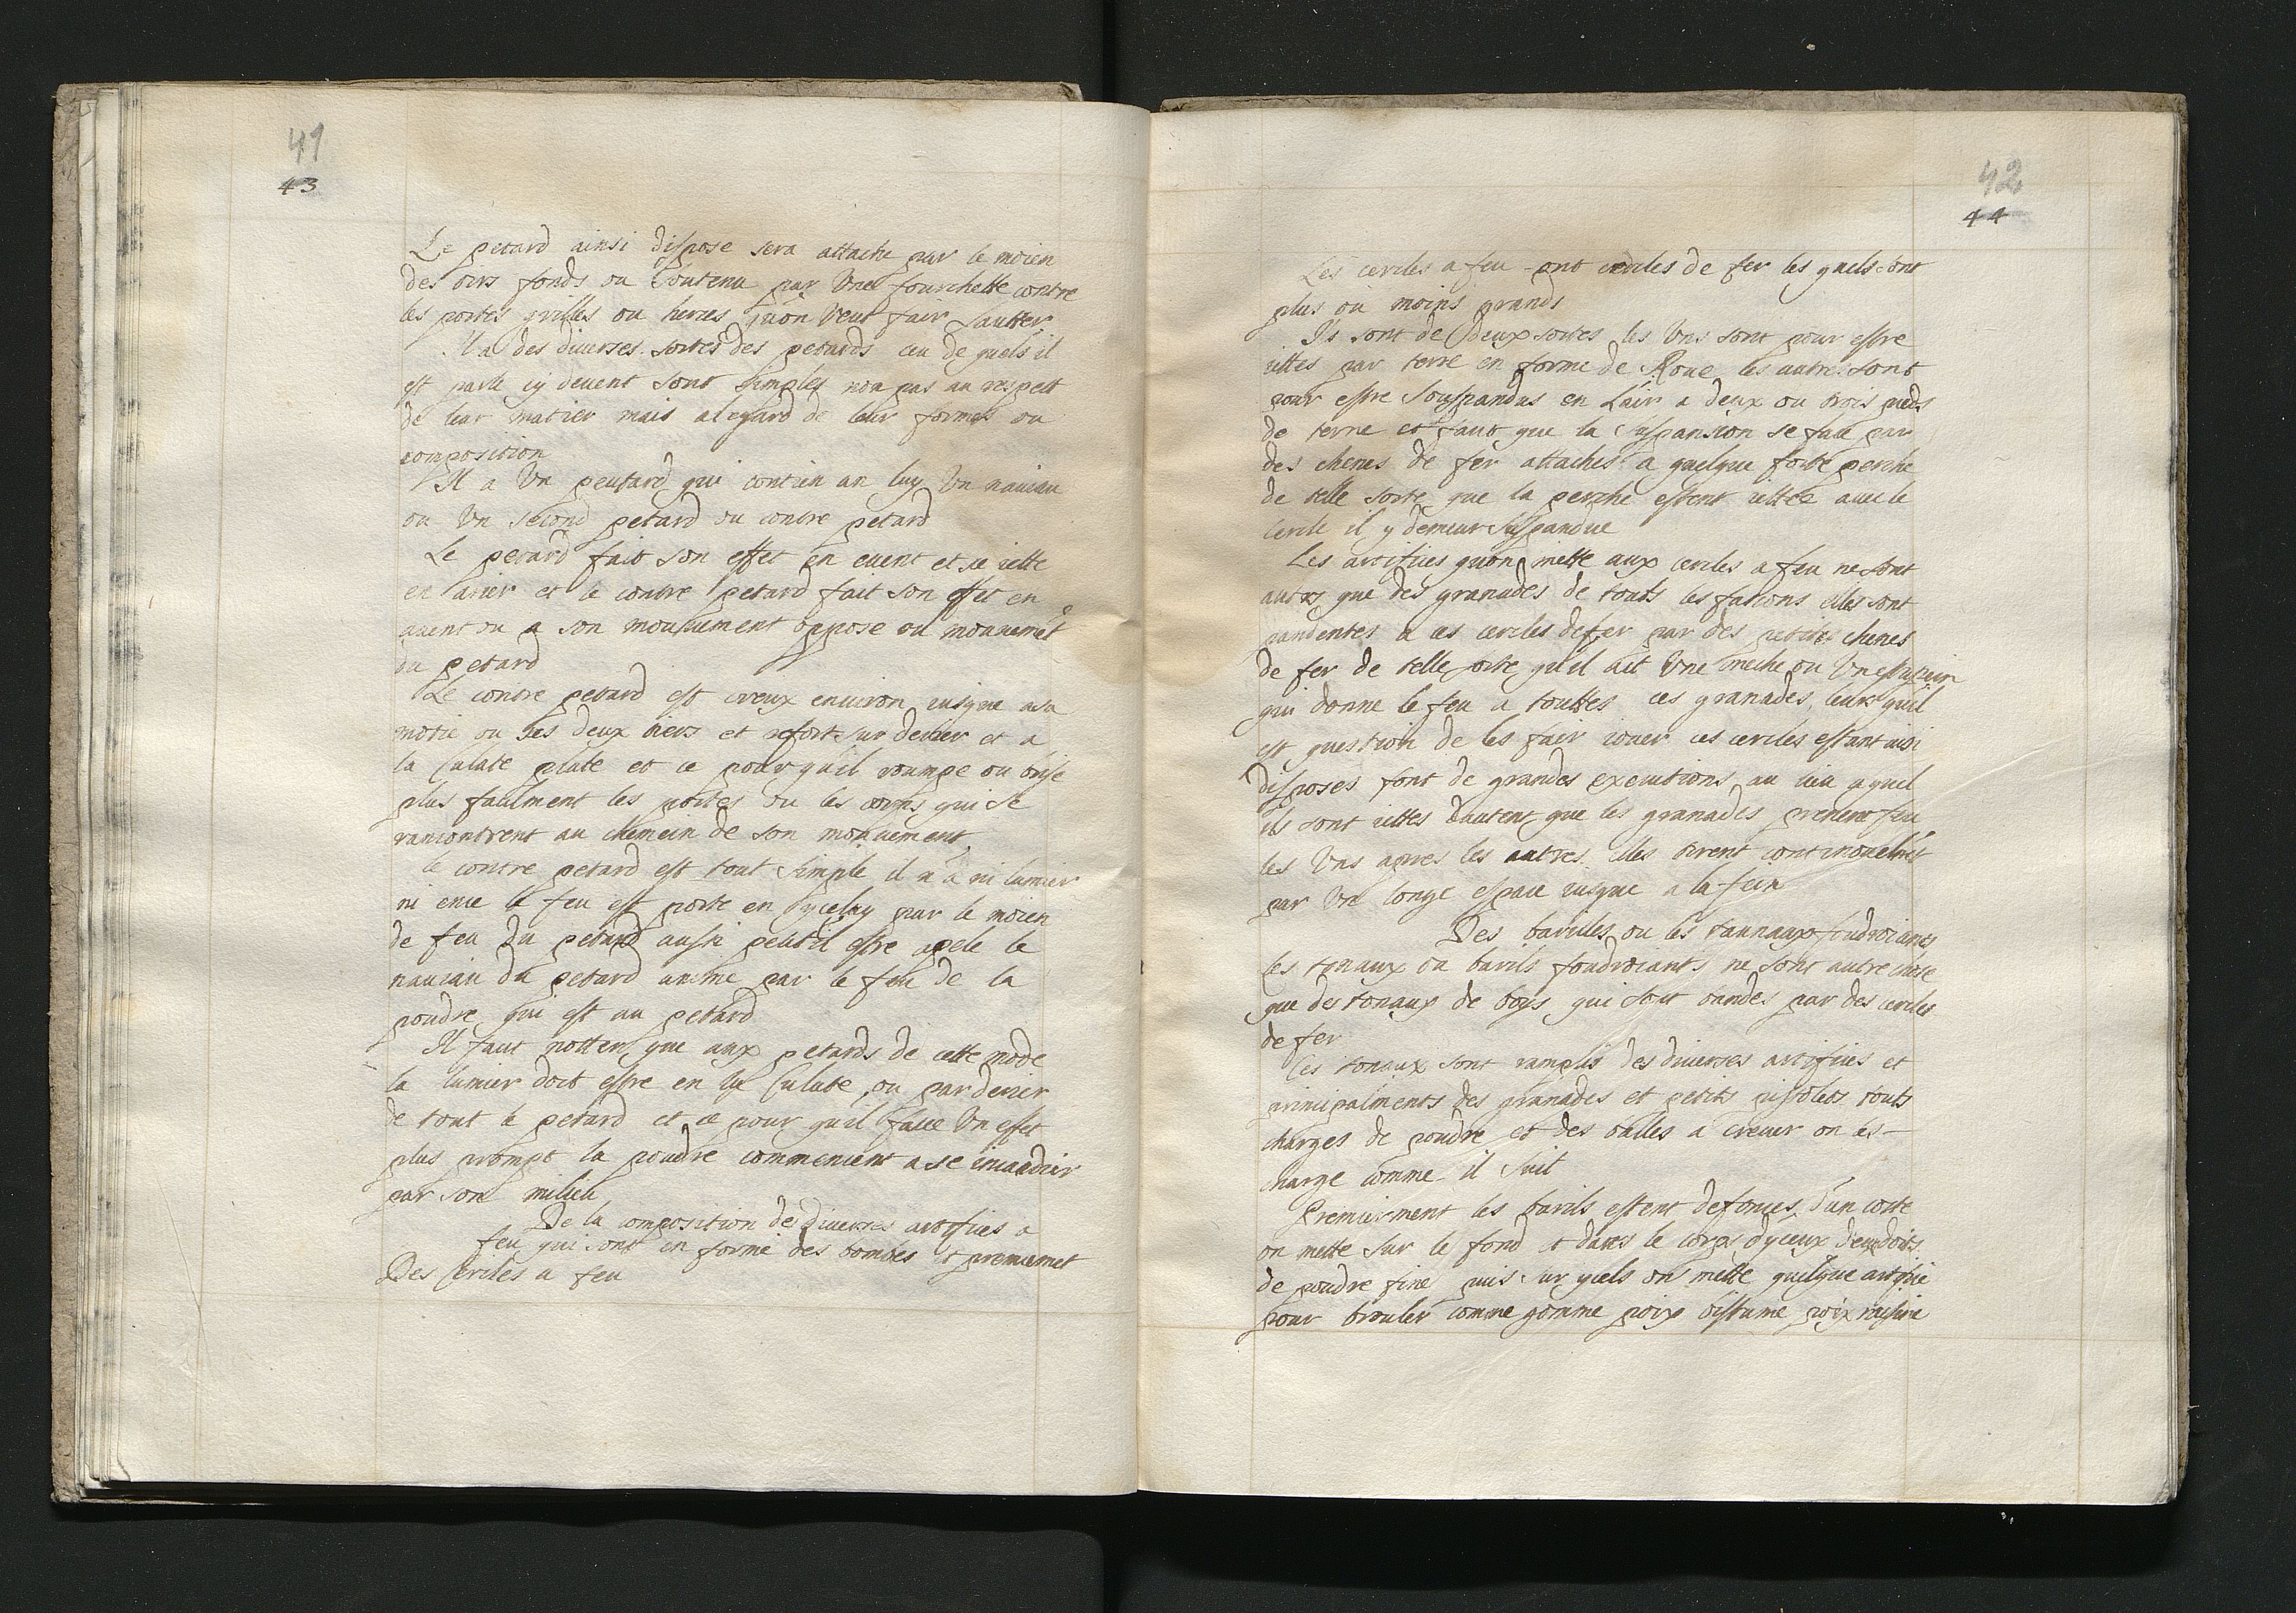 41
43
Le petard ainsi dispose sera attache par le moien
des tirs fonds ou soutenu par Une fourchette contre
les portes grilles ou herces quon Veut fair sautter
Il a des diverses sortes des petards ceu de quels il
est parle cy devent sont simples non pas au respett
de leur matier mais alegard de leur formes ou
composition
Il a Un peutard qui contien an luy Un nauiau
ou Un second petard ou contre petard
Le petard fait son effet en euent et se iette
en arier et le contre petard fait son effet en
auent ou a son mouuement oppose ou mouuemēt
du petard
Le contre petard est creux enuiron iusque a sa
motie ou les deux tiers et refort sur derier et a
la Culate plate et ce pour quil roumpe ou brise
plus facilment les portes ou les corps qui se
rancontrent au chemein de son mouuement
le contre petard est tout simple il n a ni lumier
ni ence le feu est porte en yceluy par le moien
de feu du petard aussi peutil estre apele le
nauiau du petard anime par le feu de la
poudre qui est au petard
Il faut notter que aux petards de cette mode
la lumier doit estre en la Culate ou par derier
de tout le petard et ce pour quil face Un effet
plus prompt la poudre commencent a se encandrir
par son milieu
De la composition des diverses artifices a
feu qui sont en forme des bombes et premiemet
Des Cercles a feu
42
44
Les cercles a feu - ont cercles de fer les quels sont
plus ou moins grands
Ils sont de deux sortes les Uns sont pour estre
iettes par terre en forme de Roue les autre sont
pour estre souspandus en Lair a deux ou trois pieds
de terre et faut que la suspansion se face par
des chenes de fer attaches a quelque forte perche
de telle sorte que la perche estent iettee auec le
Cercle il y demeur suspandue
Les artifices quon mette aux cercles a feu ne sont
autrs que des granades de touts les facions elles sont
pandentes a ces cercles de fer par des petites chenes
de fer de telle sorte quil ait Une meche ou Un estoupin
qui donne le feu a touttes ces granades leurs quil
est question de les fair iouer ces cercles estant insi
disposes font de grandes executions au lieu aquel
ils sont iettes dautent que les granades prenent feu
les Uns apres les autres elles tirent continouelmēt
par Un longe espace iusque a la fein
Des bariles ou les tannaux foudroiants
les tonaux ou barils foudroiants ne sont autre chose
que des tonaux de boys qui sont bandes par des cercles
de fer
Ces tonaux sont ramplis des diverses artifices et
principalments des granades et petits pistolets touts
charges de poudre et des balles a creuer on es-
charge comme il suit
Premierment les barils estent defonces d'un coste
on mette sur le fond et dans le corps dyceux deux doits
de poudre fine puis sur quels on mette quelque artifice
pour brouler comme gomme poix bistume poix raisine